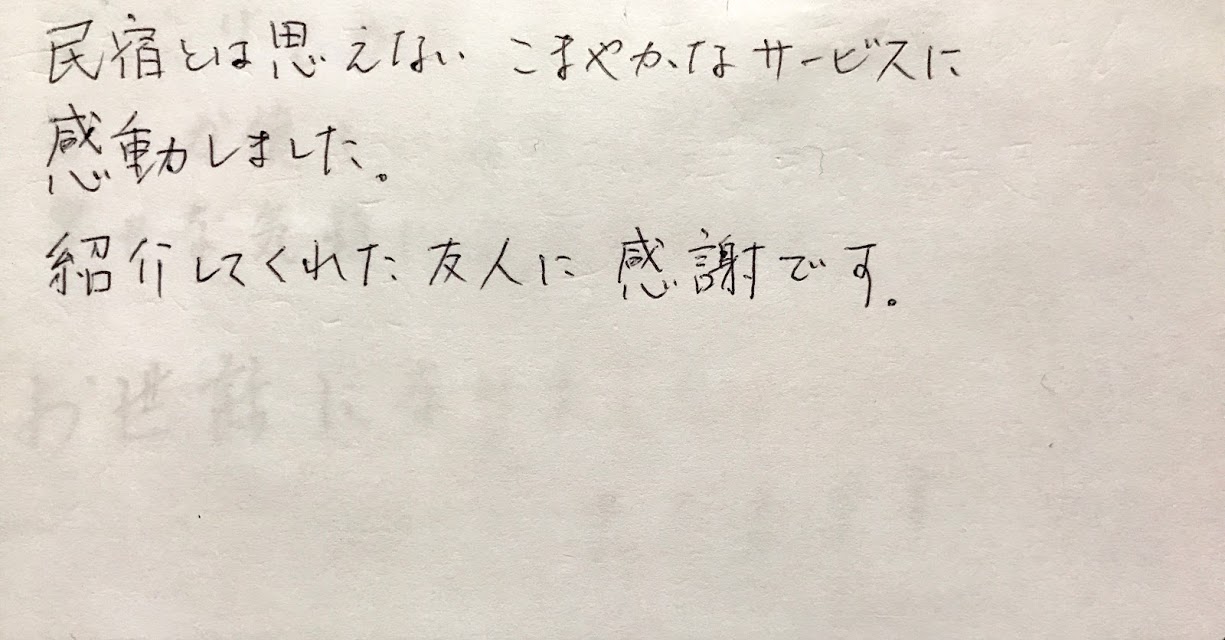 民宿とは思えない こまやかなサービスに
感動しました。
紹介してくれた友人に 感謝です。
お世話に